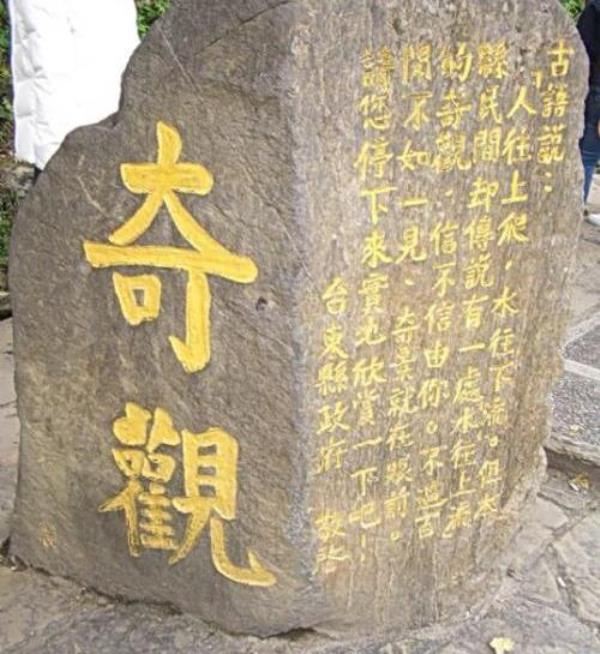 奇觀
古語說：
「人往上爬，水往下流。但本
縣民間却傳說有一處水往上流
的奇觀，信不信由你。不過百
聞不如一見、奇景就在眼前。
請您停下來實地欣賞一下吧！
台東縣政府 敬啟